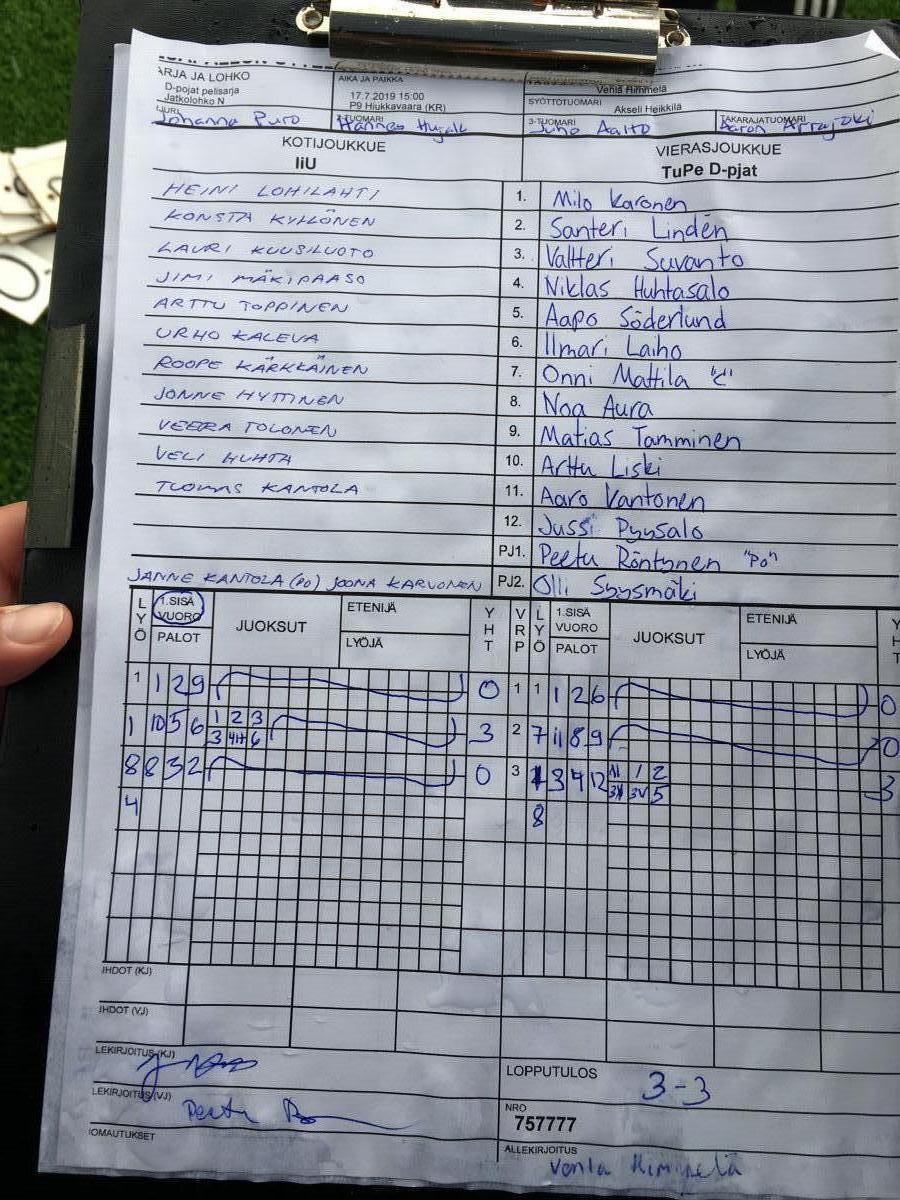 ARJA JA LOHKO
D-pojat pelisarja
Jatkolohko N
AIKA JA PAIKKA
17.7.2019 15:00
P9 Hiukkavaara (KR)
SYÖTTÖTUOMARI
Akseli Heikkilä
Johanna Puro
2-TUOMARI
3-TUOMARI
Juho Aalto
TAKARAJATUOMARI
KOTIJOUKKUE
IiU
VIERASJOUKKUE
TuPe D-pjat
HEINI LOHILAHTI 1. Milo Karonen
KONSTA KYLLÖNEN 2. Santeri Lindén
LAURI KUUSILUOTO 3. Valtteri Suvanto
JIMI MÄKIPAASO 4. Niklas Huhtasalo
ARTTU TOPPINEN 5. Aapo Söderlund
URHO KALEVA 6. Ilmari Laiho
ROOPE KÄRKKÄINEN 7. Onni Mattila "C"
JONNE HYTTINEN 8. Noa Aura
VEERA TOLONEN 9. Matias Tamminen
VELI HUHTA 10. Arttu Liski
TUOMAS KANTOLA 11. Aaro Vantonen
12. Jussi Pyysalo
PJ1. Peetu Röntynen "Po"
JANNE KANTOLA (PO) JOONA KARVONEN PJ2. Olli Syysmäki
LYÖ 1.SISÄ VUORO PALOT JUOKSUT ETENIJÄ LYÖJÄ YHT VRP LYÖ 1.SISÄ VUORO PALOT JUOKSUT ETENIJÄ LYÖJÄ YHT
1 1 2 9 0 1 1 1 2 6 0
1 10 5 6 1 2 3 3 2 7 11 8 9 0
3 4H 6
8 8 3 2 0 3 3 4 12 1 2 3
3V 5
4 8
IHDOT (KJ)
IHDOT (VJ)
LEKIRJOITUS (KJ)
LOPPUTULOS 3-3
LEKIRJOITUS (VJ)
NRO
757777
OMAUTUKSET
ALLEKIRJOITUS
Venla Himmelä